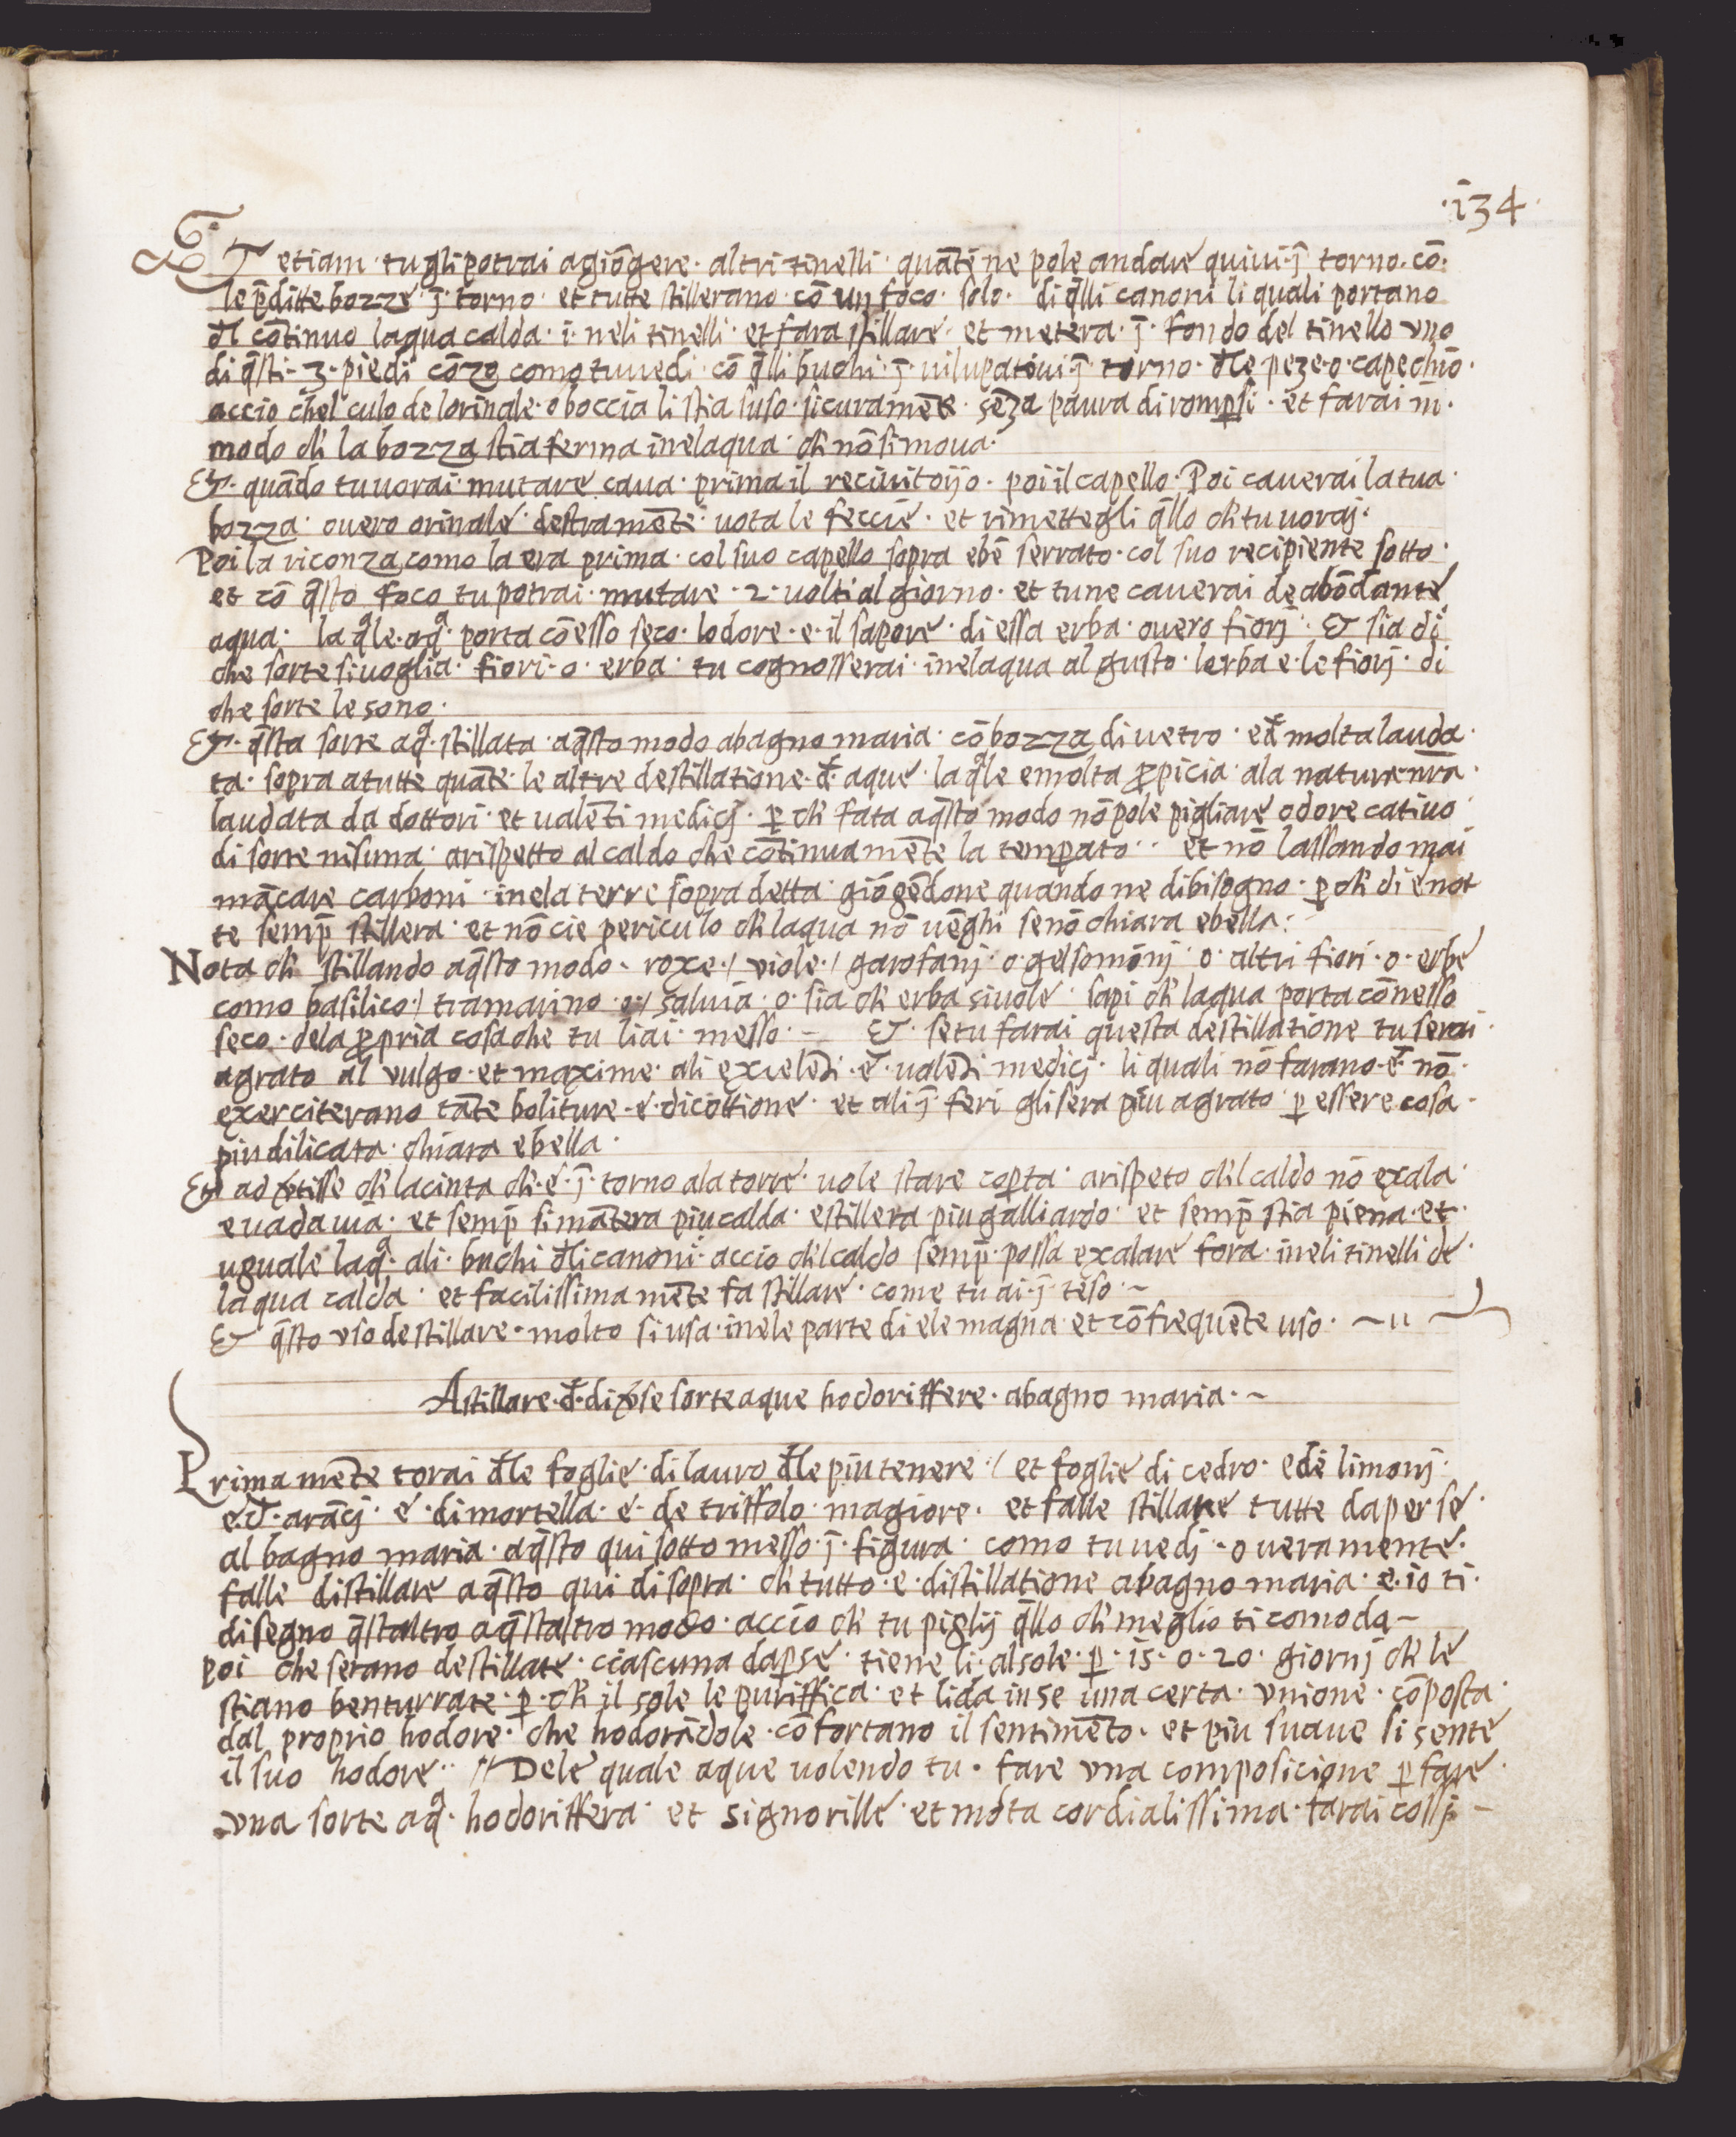 ·i34·
ET etiam tu gli potrai agiõgere · altri tinelli · quãti ne pole andare quiui · ĩ torno · cõ ·
le p̄ditte bozze · ĩ · torno · et tutte stillerano · cõ un foco · solo · di q̄lli canoni li quali portano
đl cõtinuo laqua calda · i · neli tinelli · et fara stillare · et metera · ĩ · fondo del tinello vno
di q̄sti · 3 · piedi cõzo como tu uedi · cõ q̄lli buchi · ĩ · uilupatoui ĩ · torno · đle peze · o · capechio ·
accio chel culo de lorinale · o boccia li stia suso · sicuramẽte · sẽza paura di romp̱si · et farai in ·
modo ch' la bozza stia ferma inelaqua · ch' nõ si moua ·
Et · quãdo tu uorai · mutare caua · prima il reciuitoijo · poi il capello · Poi cauerai la tua ·
bozza · ouero orinale · destramẽte · uota le feccie · et rimettegli q̄llo ch' tu uoraj ·
Poi la riconza como la era prima · col suo capello sopra ebẽ serrato · col suo recipiente sotto ·
et cõ q̄sto foco tu potrai · mutare · 2 · uolti al giorno · et tu ne cauerai de abõdante
aqua · la qᵃle · aqᵃ · porta cõesso seco · lodore · e · il sapore · di essa erba · ouero fiorj · & sia di
che sorte si uoglia · fiori · o · erba · tu cognosserai · inelaqua al gusto · lerba e · le fiorj · di
che sorte le sono ·
Et · q̄sta sorte aqᵃ · stillata · aq̄sto modo abagno maria · cõ bozza di uetro · eđ molta lauda ·
ta · sopra a tutte quãte · le altre destillatione · đ · aque · la qᵃle e molta ꝓpicia · ala natura nr̃a ·
laudata da dottori · et ualẽti medicj · ꝑ ch' fata aq̄sto modo nõ pole pigliare odore catiuo
di sorte nisuna · arispetto al caldo che cõtinuamẽte la temp̱ato · · et nõ lassando mai
mãcare carboni · inela terre sopradetta · giõgẽdone quando ne di bisogno · ꝑ ch' di e not
te semp̄ stillera · et nõ cie periculo ch' laqua nõ uẽghi se nõ chiara e bella ·
Nota ch' stillando aq̄sto modo · roxe · / viole · / garofanj · o · gelsominj · o · altri fiori · o · erbe
como basilico · / tramarino · o · / saluia · o · sia ch' erba si uole · sapi ch' laqua porta cõnesso
seco · dela ꝓpria cosa che tu li ai · messo · – Et · se tu farai questa destillatione tu serai ·
agrato al vulgo · et maxime · ali excelẽti · e · ualẽti medicj · li quali nõ farano · e · nõ ·
exerciterano tãte boliture · e · dicottione · et ali ĩ feri gli sera piu agrato · ꝑ essere cosa ·
piu dilicata · chiara e bella ·
Et adṽtisse ch' la cinta ch' · e · ĩ · torno ala torre · uole stare cop̱ta · arispeto ch'l caldo nõ exala ·
e uada uia · et semp̄ si mãtera piu calda · e stillera piu galliardo · et semp̄ stia piena · et ·
uguale laqᵃ · ali · buchi đli canoni · accio ch'l caldo semp̄ · possa exalare fora · ineli tinelli de ·
laqua calda · et facilissimamẽte fa stillare · come tu ai · ĩ teso · ~
Et q̄sto vso de stillare · molto si usa · inele parte di elemagna · et cõ frequẽte uso · ~ıı ~
Astillare · đ · diṽse sorte aque hodoriffere · abagno maria · ~
Primamẽte torai đle foglie · di lauro đle piu tenere · / et foglie di cedro · e de limonj ·
e · đ · arãcj · e · di mortella · e · de triffolo · magiore · et falle stillare tutte da per se ·
al bagno maria · aq̄sto qui sotto messo · ĩ · figura · como tu uedj · o ueramente ·
falle distillare aq̄sto qui di sopra · ch' tutto · e · distillatione abagno maria · e · io ti ·
disegno q̄staltro aq̄staltro modo · accio ch' tu piglij q̄llo ch' meglio ti comoda –
poi che serano destillate · ciascuna dap̱se · tiene li · al sole · ꝑ · i5 · o · 20 · giornj ch' le
stiano benturrate · ꝑ · ch' il sole le puriffica · et li da in se una certa · vnione · cõposta ·
dal proprio hodore · che hodorãdole · cõfortano il sentimẽto · et piu suaue si sente
il suo hodore · · // Dele quale aque uolendo tu · fare vna composicione ꝑ fare ·
vna sorte aqᵃ · hodoriffera · et signorille · et molta cordialissima · farai cossj –